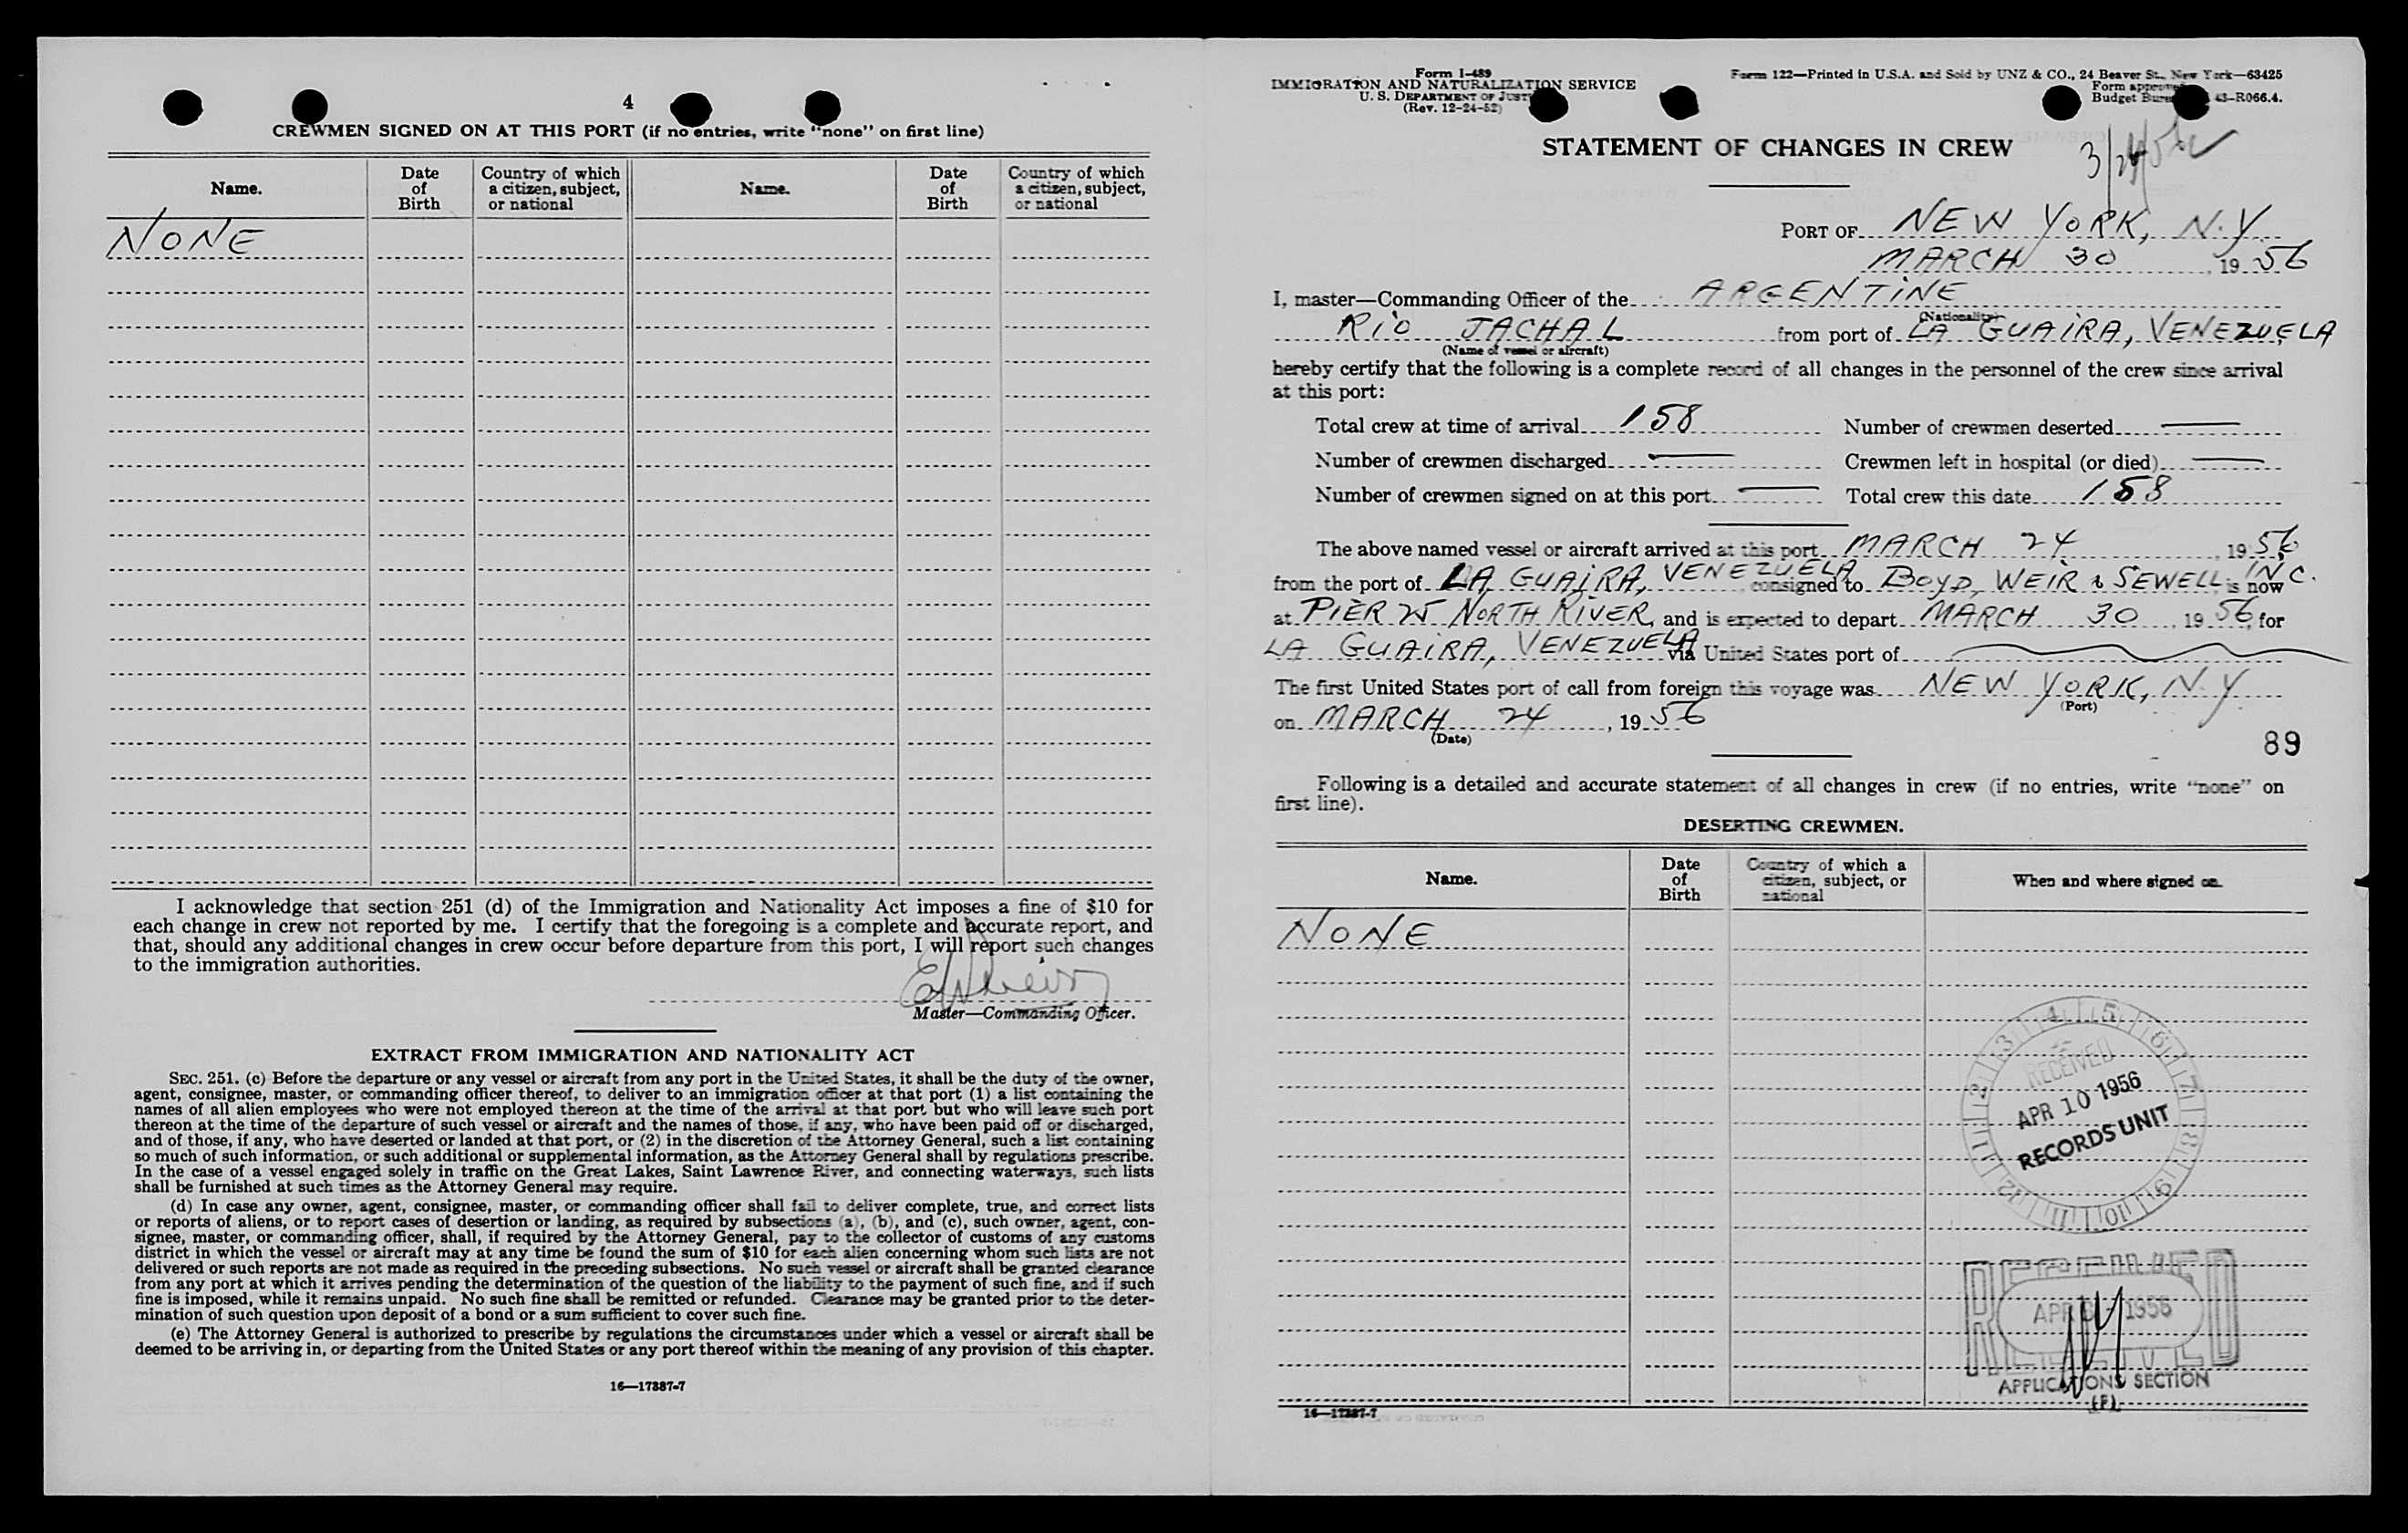 4
CREWMEN SIGNED ON AT THIS PORT (if no entries, write "none" on first line)
Name. Date of Birth Country of which a citizen, subject, or national Name. Date of Birth Country of which a citizen, subject, or national
NONE
I acknowledge that section 251 (d) of the Immigration and Nationality Act imposes a fine of $10 for
each change in crew not reported by me. I certify that the foregoing is a complete and accurate report, and
that, should any additional changes in crew occur before departure from this port, I will report such changes
to the immigration authorities.
Master—Commanding Officer.
EXTRACT FROM IMMIGRATION AND NATIONALITY ACT
SEC. 251. (c) Before the departure or any vessel or aircraft from any port in the United States, it shall be the duty of the owner,
agent, consignee, master, or commanding officer thereof, to deliver to an immigration officer at that port (1) a list containing the
names of all alien employees who were not employed thereon at the time of the arrival at that port but who will leave such port
thereon at the time of the departure of such vessel or aircraft and the names of those, if any, who have been paid off or discharged,
and of those, if any, who have deserted or landed at that port, or (2) in the discretion of the Attorney General, such a list containing
so much of such information, or such additional or supplemental information, as the Attorney General shall by regulations prescribe.
In the case of a vessel engaged solely in traffic on the Great Lakes, Saint Lawrence River, and connecting waterways, such lists
shall be furnished at such times as the Attorney General may require.
(d) In case any owner, agent, consignee, master, or commanding officer shall fail to deliver complete, true, and correct lists
or reports of aliens, or to report cases of desertion or landing, as required by subsections (a), (b), and (c), such owner, agent, con-
signee, master, or commanding officer, shall, if required by the Attorney General, pay to the collector of customs of any customs
district in which the vessel or aircraft may at any time be found the sum of $10 for each alien concerning whom such lists are not
delivered or such reports are not made as required in the preceding subsections. No such vessel or aircraft shall be granted clearance
from any port at which it arrives pending the determination of the question of the liability to the payment of such fine, and if such
fine is imposed, while it remains unpaid. No such fine shall be remitted or refunded. Clearance may be granted prior to the deter-
mination of such question upon deposit of a bond or a sum sufficient to cover such fine.
(e) The Attorney General is authorized to prescribe by regulations the circumstances under which a vessel or aircraft shall be
deemed to be arriving in, or departing from the United States or any port thereof within the meaning of any provision of this chapter.
16—17387-7
Form I-489
IMMIGRATION AND NATURALIZATION SERVICE
U. S. DEPARTMENT OF JUST
(Rev. 12-24-52)
Form 122—Printed in U.S.A. and Sold by UNZ & CO., 24 Beaver St., New York—63425
Form approved
Budget Bureau 43-R066.4.
STATEMENT OF CHANGES IN CREW
PORT OF NEW YORK, N.Y.
MARCH 30, 1956
I, master—Commanding Officer of the ARGENTINE
(Nationality)
RiO JACHAL from port of LA GUAiRA, VENEZUELA
(Name of vessel or aircraft)
hereby certify that the following is a complete record of all changes in the personnel of the crew since arrival
at this port:
Total crew at time of arrival 158 Number of crewmen deserted —
Number of crewmen discharged — Crewmen left in hospital (or died) —
Number of crewmen signed on at this port — Total crew this date 158
The above named vessel or aircraft arrived at this port MARCH 24, 1956
from the port of LA GUAiRA, VENEZUELA consigned to BOYD, WEIR & SEWELL, INC. is now
at PIER 25 NORTH RIVER, and is expected to depart MARCH 30, 1956, for
LA GUAIRA, VENEZUELA via United States port of
The first United States port of call from foreign this voyage was NEW YORK, N.Y
(Port)
on MARCH 24, 1956
(Date)
89
Following is a detailed and accurate statement of all changes in crew (if no entries, write "none" on
first line).
DESERTING CREWMEN.
Name. Date of Birth Country of which a citizen, subject, or national When and where signed on.
NONE
4 5 6 7 8 9 10 11 12 1 2 3
RECEIVED
APR 10 1956
RECORDS UNIT
RECEIVED
APR 1956
RECEIVED
APPLICATIONS SECTION
(F)
16—17387-7